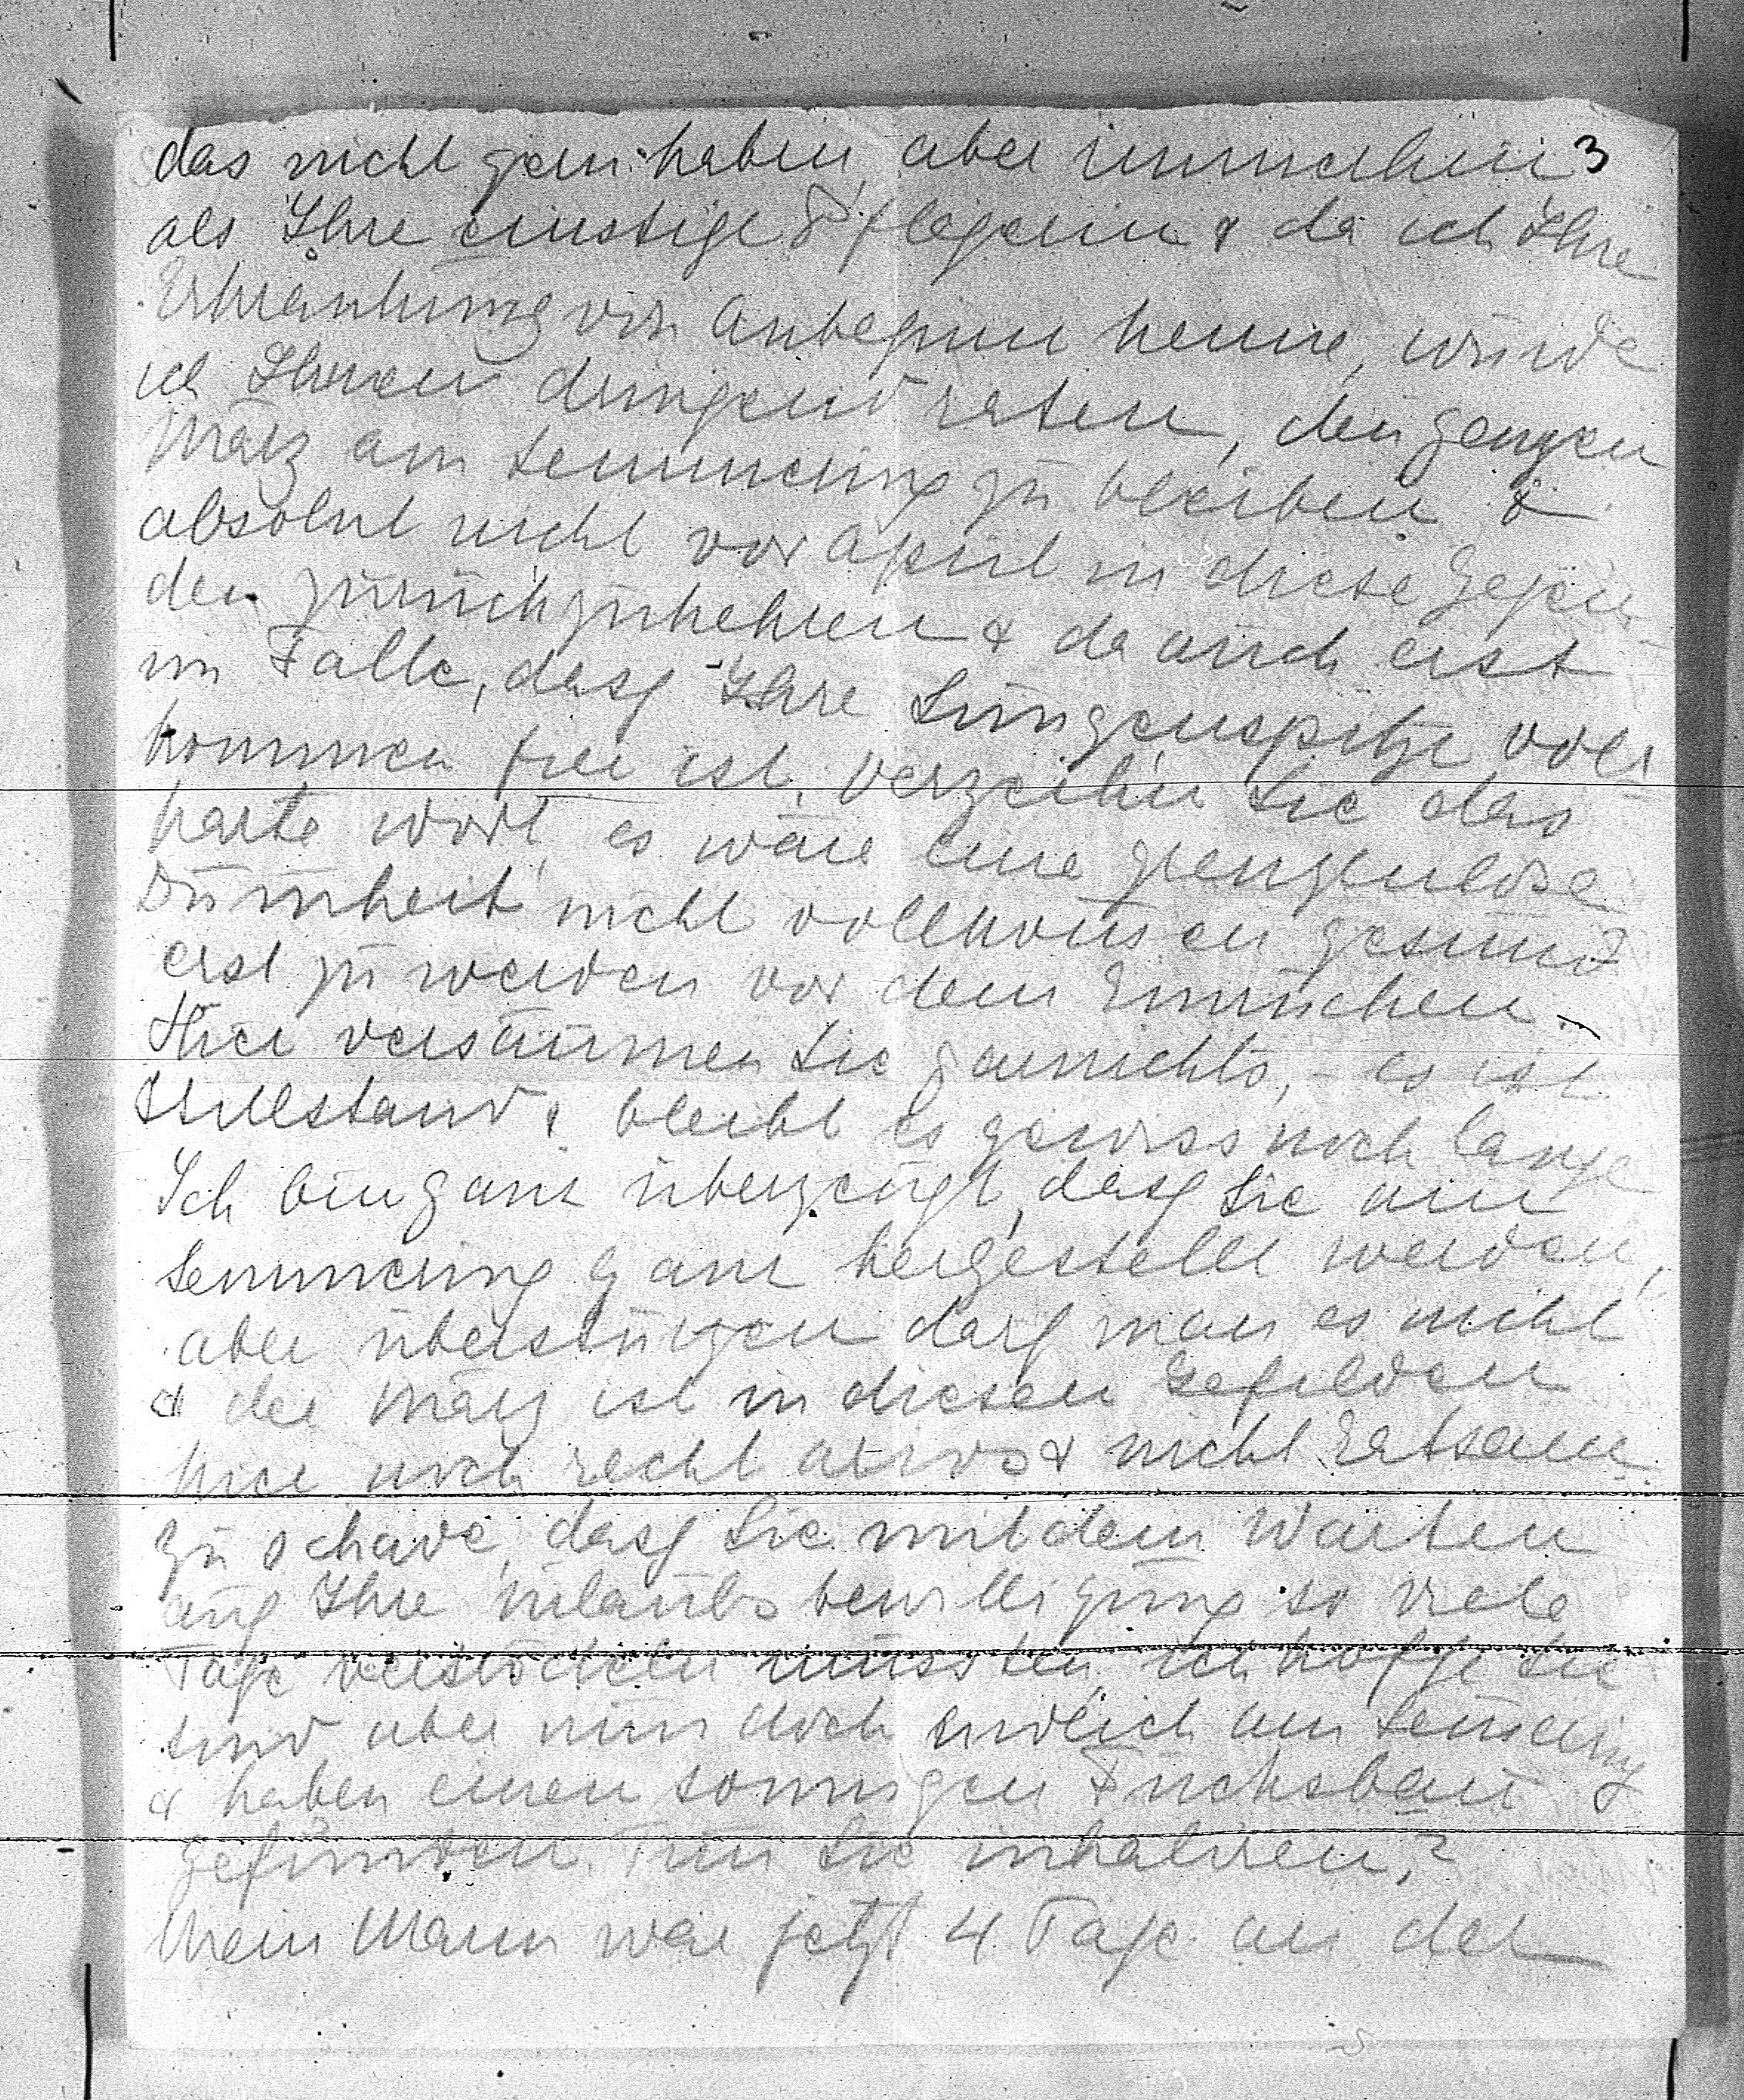 das nicht gern haben, aber immerhin 3
als Ihre einstige Pflegerin & da ich Ihre
Erkrankung von Anbeginn kenne, würde
ich Ihnen dringend raten, den ganzen
März am Semmering zu bleiben &
absolut nicht vor April in diese Gegen-
den zurückzukehren & da auch erst
im Falle, dass Ihre Lungenspitze voll-
kommen frei ist. Verzeihn Sie das
harte Wort, es wäre eine grenzenlose
Dummheit nicht vollkommen gesund
erst zu werden vor dem Einrücken.
Hier versäumen Sie garnichts, - es ist
Stillstand & bleibt es gewiss noch lange
Ich bin ganz überzeugt, dass Sie am
Semmering ganz hergestellt werden,
aber überstürzen darf man es nicht
& der März ist in diesen Gefilden
hier noch recht & nicht ratsam.
Zu schade, dass Sie mit dem Warten
auf Ihre Urlaubsbewilligung so viele
Tage müssten, ich hoffe Sie
sind aber nun doch endlich am Semering
& haben einen sonnigen Fuchsbau
gefunden. Tun Sie inhalieren?
Mein Mann war jetzt 4 Tage an der